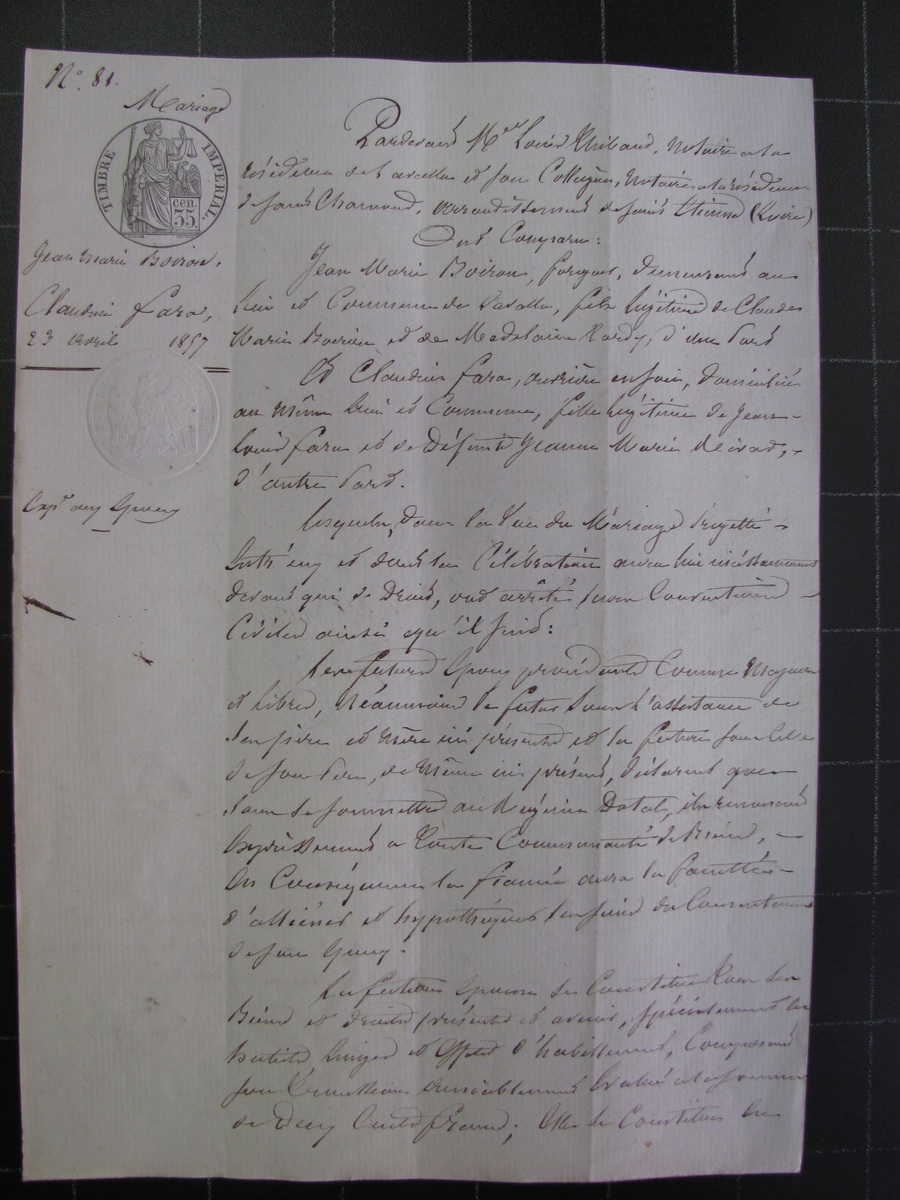 N° 81.
Mariage
TIMBRE IMPERIAL
35 cen.
Jean Marie Boiron.
Claudine Fara,
23 Avril 1857
Expon aux Epoux
Pardevant Me Louis Thibaud, Notaire à la
résidence de Lavalla et son Collègue, Notaire à la résidence
de Saint Chamond, arrondissement de Saint Etienne (Loire)
Ont Comparu:
Jean Marie Boiron, forgeur, demeurant au
lieu et Commune de Lavalla, fils légitime de Claude
Marie Boiron et de Madelaine Hardy, d'une Part
Et Claudine Fara, ouvrière en soie, domiciliée
au même lieu et Commune, fille légitime de Jean
Louis Fara et de Défunte Jeanne Marie, 
d'autre Part.
Lesquels, dans la Vue du Mariage Projetté
Entr'eux et dont la Célébration aura lieu incessamment
devant qui de Droit, ont arrêté leurs Conventions
Civiles ainsi qu'il suit:
Les futurs Epoux procédants Comme Majeurs
et libres, Néanmoins le futur sous l'assistance de
ses père et mère ici présents et la future sous celle
de son Père, de même ici présent, déclarent que
sans se soumettre au Régime Dotal, ils renoncent
Expressément à toute Communauté de Biens,
En Conséquence la fiancée aura la faculté
d'alliéner et hypothéquer ses fonds du Consentement
de son Epoux.
La future Epouse se Constitue tous ses
Biens et droits présents et avenir, spécialement les
habits, linges et Effets d'habillement, Composant
son Trousseau amiablement Evalué à la somme
de Deux Cents francs; Elle se Constitue en